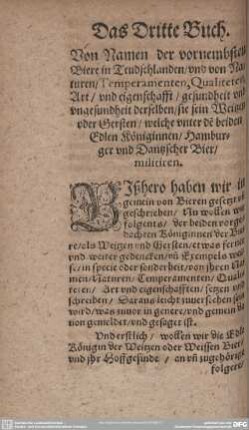 Das Dritte Buch.
Von Namen der vornembsten
Biere in Teudschlanden/ vnd von Na
turen/ Temperamenten, Qualiteten
Art/ vnd eigenschafft/ gesundheit vnd
vngesundheit derselben/ sie sein Weitzen
oder Gersten/ welche vnter dē beiden
Edlen Königinnen/ Hambur-
ger vnd Dantzscher Bier/
militiren.
BIßhero haben wir in
gemein von Bieren gesetzt vn
geschrieben/ Nu wollen wir
folgents/ der beiden vorge
dachten Königinnen der Bie
re/ als Weitzen vnd Gersten/ etwas ferner
vnd weiter gedencken/ vn Exempels wei
se/ in specie oder sonderheit/ von jhren Na
men/ Naturen/ Temperamenten/ Quali
teten/ Art vnd eigenschafften/ setzen vnd
schreiben/ Daraus leicht zuuersehen sein
wird/ was zuuor in genere/ vnd gemein da
von gemeldet/ vnd gesaget ist.
Vnd erstlich/ wollen wir die Edle
Königin der Weitzen oder Weissen Bier/
vnd jhr Hoffgesinde/ an vn zugehörige
folgen/